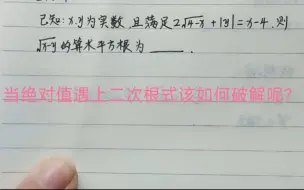 已知: x.y为实数, 且满足2√4-x+|y|=x-4, 则
√x-y的算术平方根为____.
当绝对值遇上二次根式该如何破解呢?